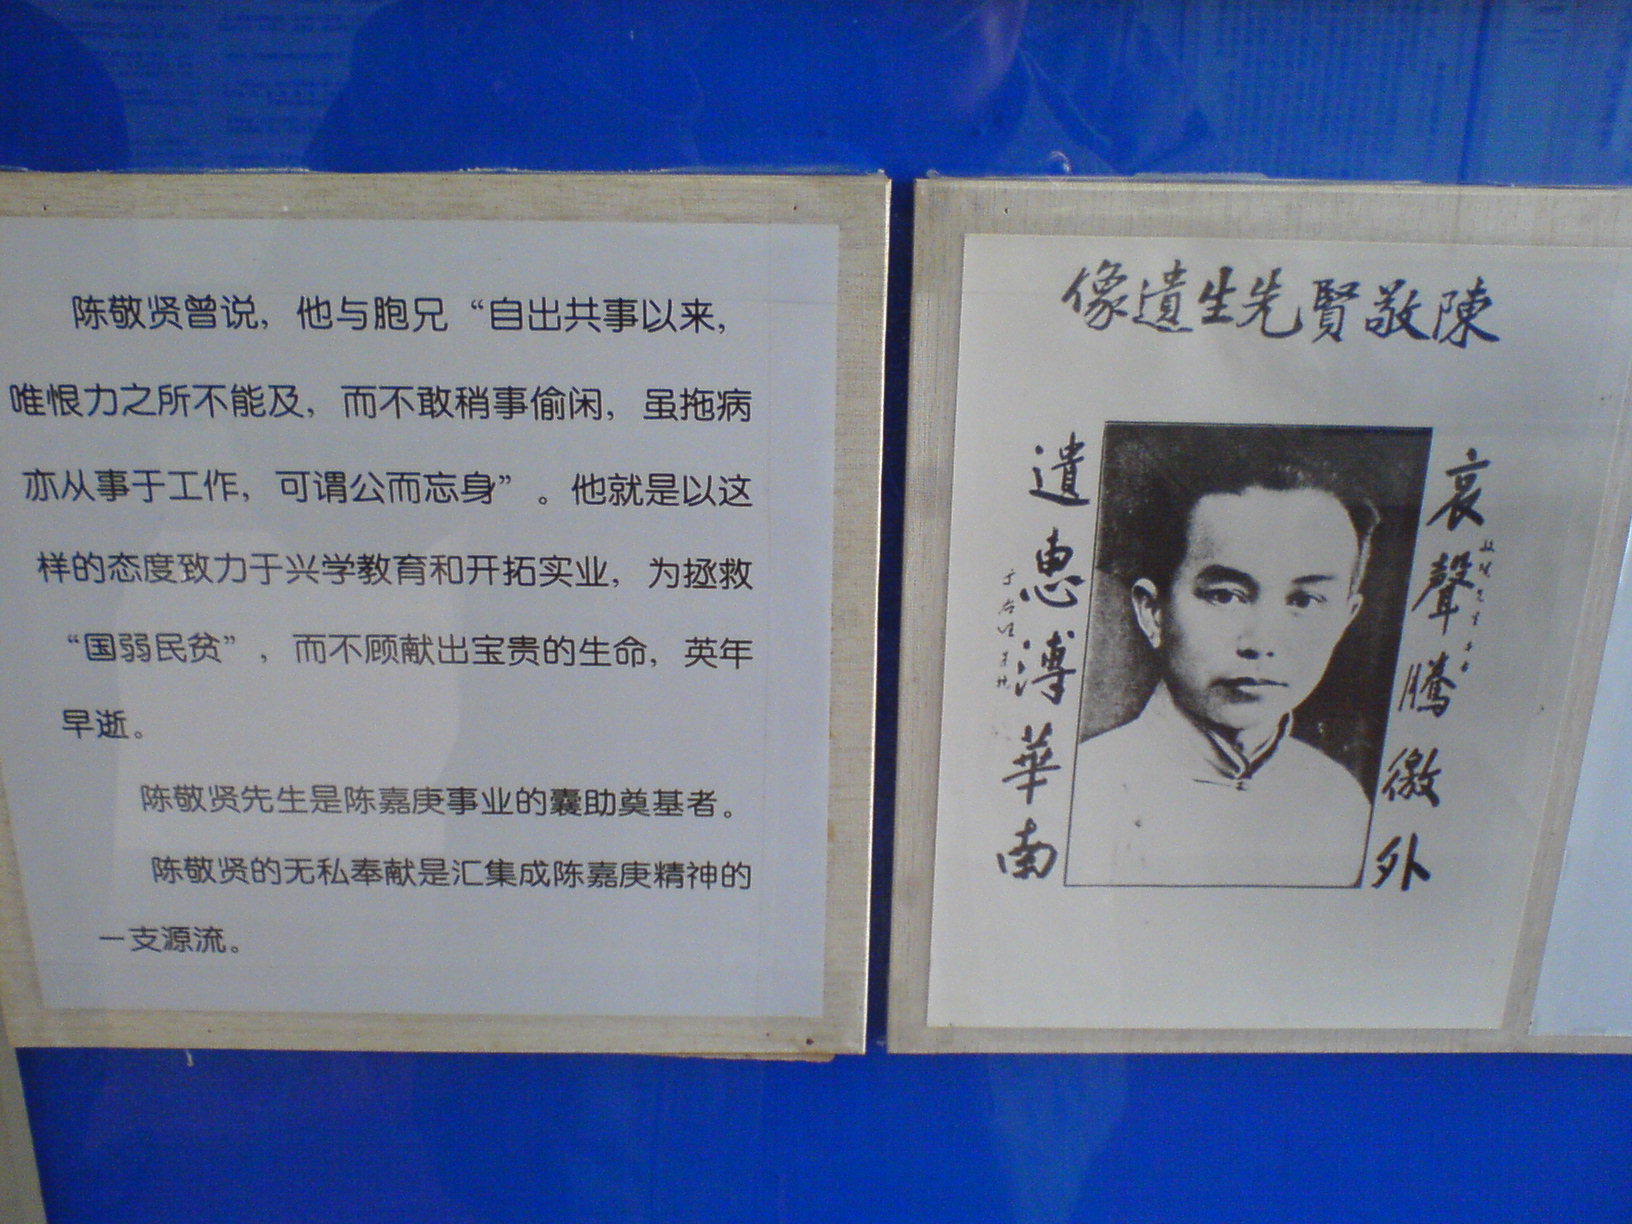 陈敬贤曾说，他与胞兄“自出共事以来，
唯恨力之所不能及，而不敢稍事偷闲，虽拖病
亦从事于工作，可谓公而忘身”。他就是以这
样的态度致力于兴学教育和开拓实业，为拯救
“国弱民贫”，而不顾献出宝贵的生命，英年
早逝。
陈敬贤先生是陈嘉庚事业的襄助奠基者。
陈敬贤的无私奉献是汇集成陈嘉庚精神的
一支源流。
陳敬賢先生遺像
哀聲騰徼外
遺惠溥華南